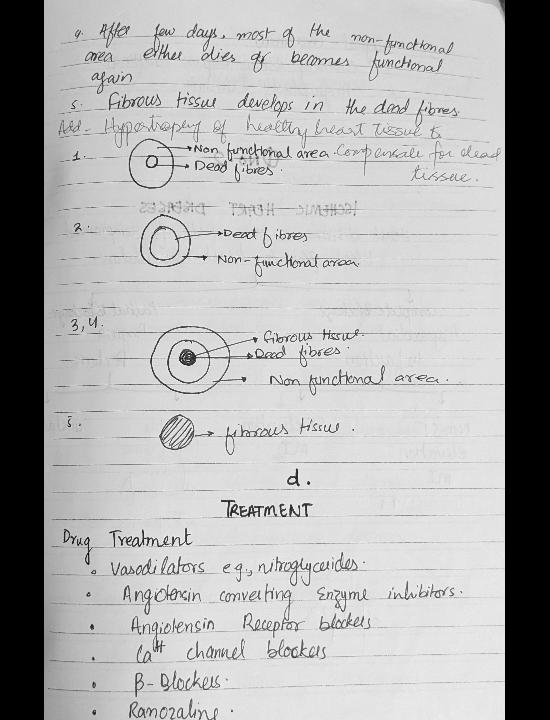 4. After few days, most of the non-functional
area either dies or becomes functional
again
5. Fibrous tissue develops in the dead fibres
Add- Hypertropey of healthy heart tissue to
compensate for dead
tissue.
1.
Non functional area.
Dead fibres.
ISCHEMIC HEART DISEASES
2.
Dead fibres
Non-functional area.
3,4.
Fibrous tissue.
Dead fibres.
Non functional area.
5.
fibrous tissue.
d.
TREATMENT
Drug Treatment
• Vasodilators eg, nitroglycerides.
• Angiotensin converting Enzyme inhibitors.
• Angiotensin Receptor blockers
• Ca++ channel blockers
• β-Blockers.
• Ranozaline.